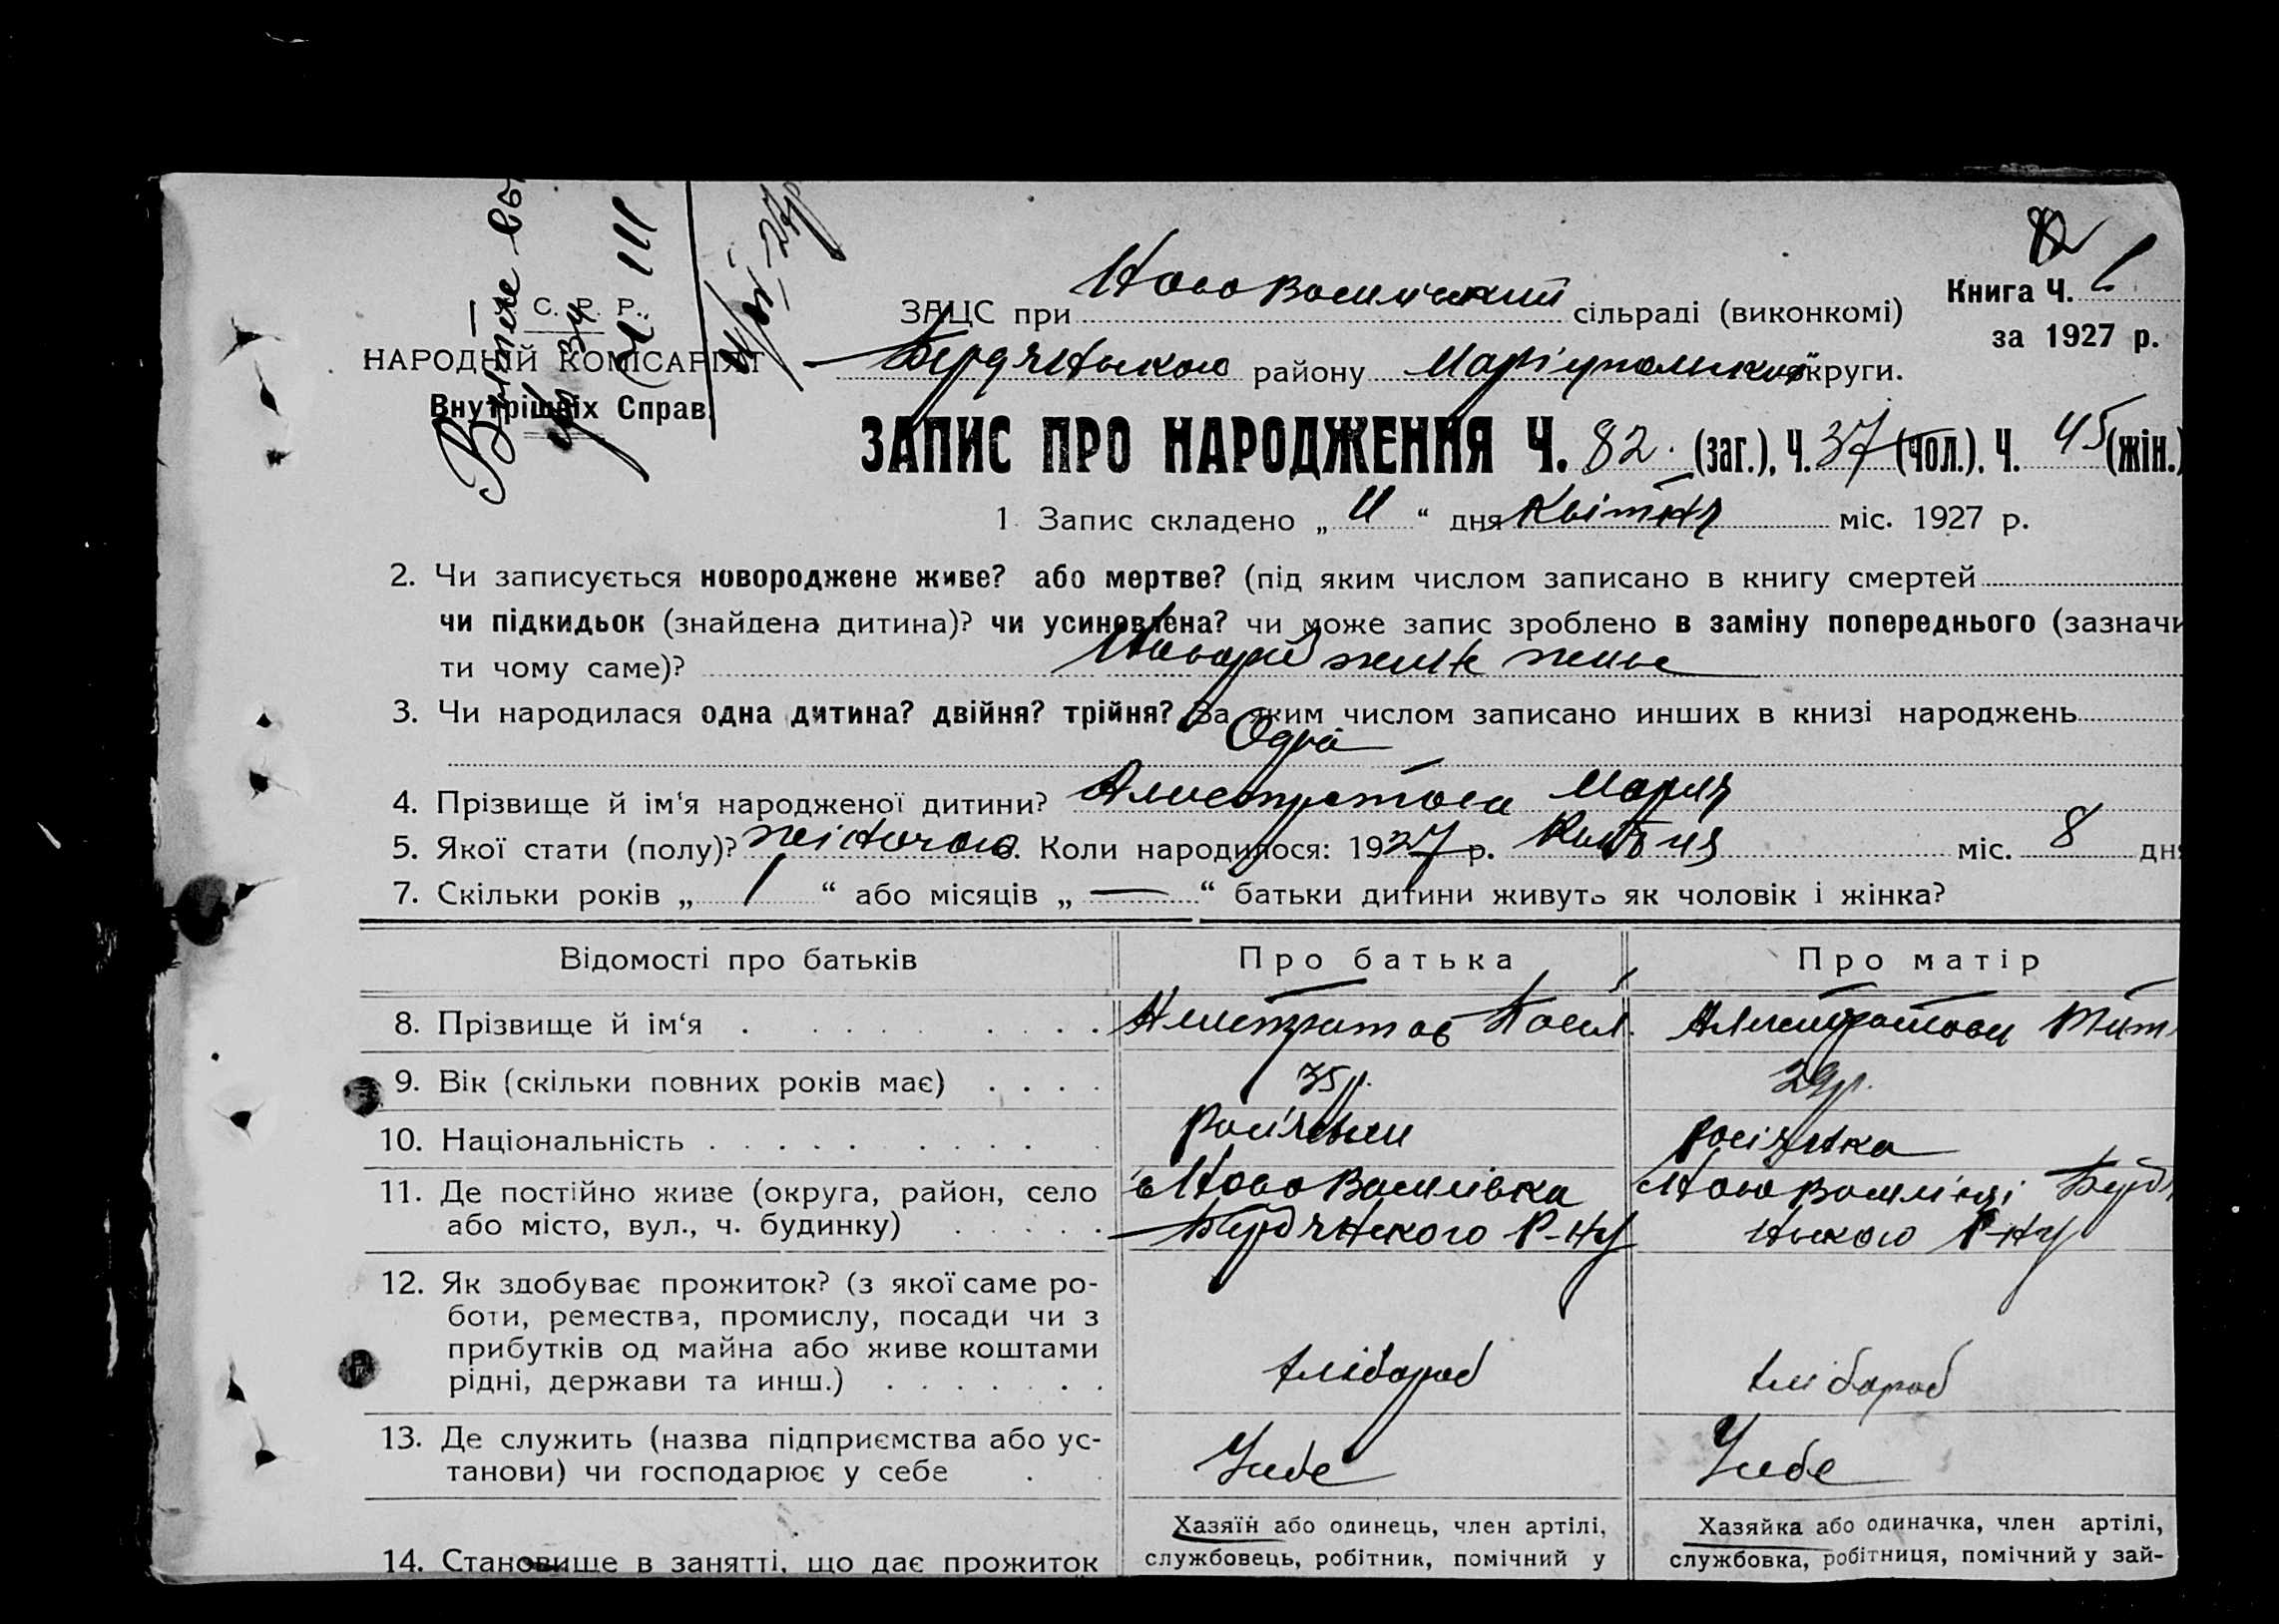 С. Р. Р.
НАРОДНІЙ КОМІСАРІЯТ
Внутрішніх Справ.
Книга Ч. 1
за 1927 р.
ЗАЦС при Ново Василівский сільраді (виконкомі)
Бердянського району Маріупольської округи.
ЗАПИС ПРО НАРОДЖЕННЯ Ч. 82. (заг.), Ч. 37 (чол.), Ч. 45 (жін.)
1. Запис складено „ 11 “ дня Квітня міс. 1927 р.
2. Чи записується новороджене живе? або мертве? (під яким числом записано в книгу смертей
чи підкидьок (знайдена дитина)? чи усиновлена? чи може запис зроблено в заміну попереднього (зазначи
ти чому саме)? живе
3. Чи народилася одна дитина? двійня? трійня? За яким числом записано инших в книзі народжень
Одна
4. Прізвище й ім‘я народженої дитини? Алистратова Мария
5. Якої стати (полу)? жіночою 6. Коли народилося: 1927 р. Квітня міс. 8 дня
7. Скільки років „ 1 “ або місяців „ — “ батьки дитини живуть як чоловік і жінка?
Відомості про батьків Про батька Про матір
8. Прізвище й ім‘я Алистратов Алистратова
9. Вік (скільки повних років має) 35 р. 29 р.
10. Національність росіянин росіянка
11. Де постійно живе (округа, район, село с Ново Василівка с Ново Василівці Бердя
або місто, вул., ч. будинку) Бердянского Р-ну нського Р-ну
12. Як здобуває прожиток? (з якої саме ро-
боти, ремества, промислу, посади чи з
прибутків од майна або живе коштами
рідні, держави та инш.) хлібороб хлібороб
13. Де служить (назва підприємства або ус-
танови) чи господарює у себе У себе У себе
14. Становище в занятті, що дає прожиток
Хазяїн або одинець, член артілі,
службовець, робітник, помічний у
Хазяйка або одиначка, член артілі,
службовка, робітниця, помічний у зай-